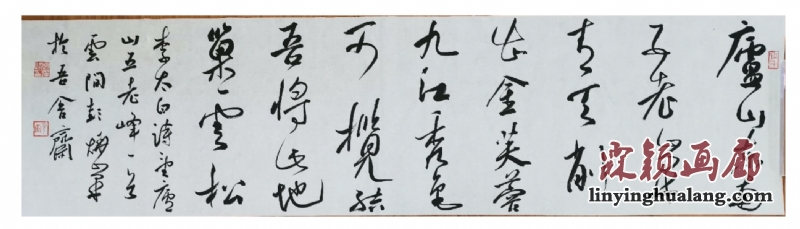 廬山東南
五老峰
青天削
出金芙蓉
九江秀色
可攬結
吾將此地
巢雲松
李太白詩望廬
山五老峰一首
雲間彭
於吾舍齋
霖颖画廊
linyinghualang.com